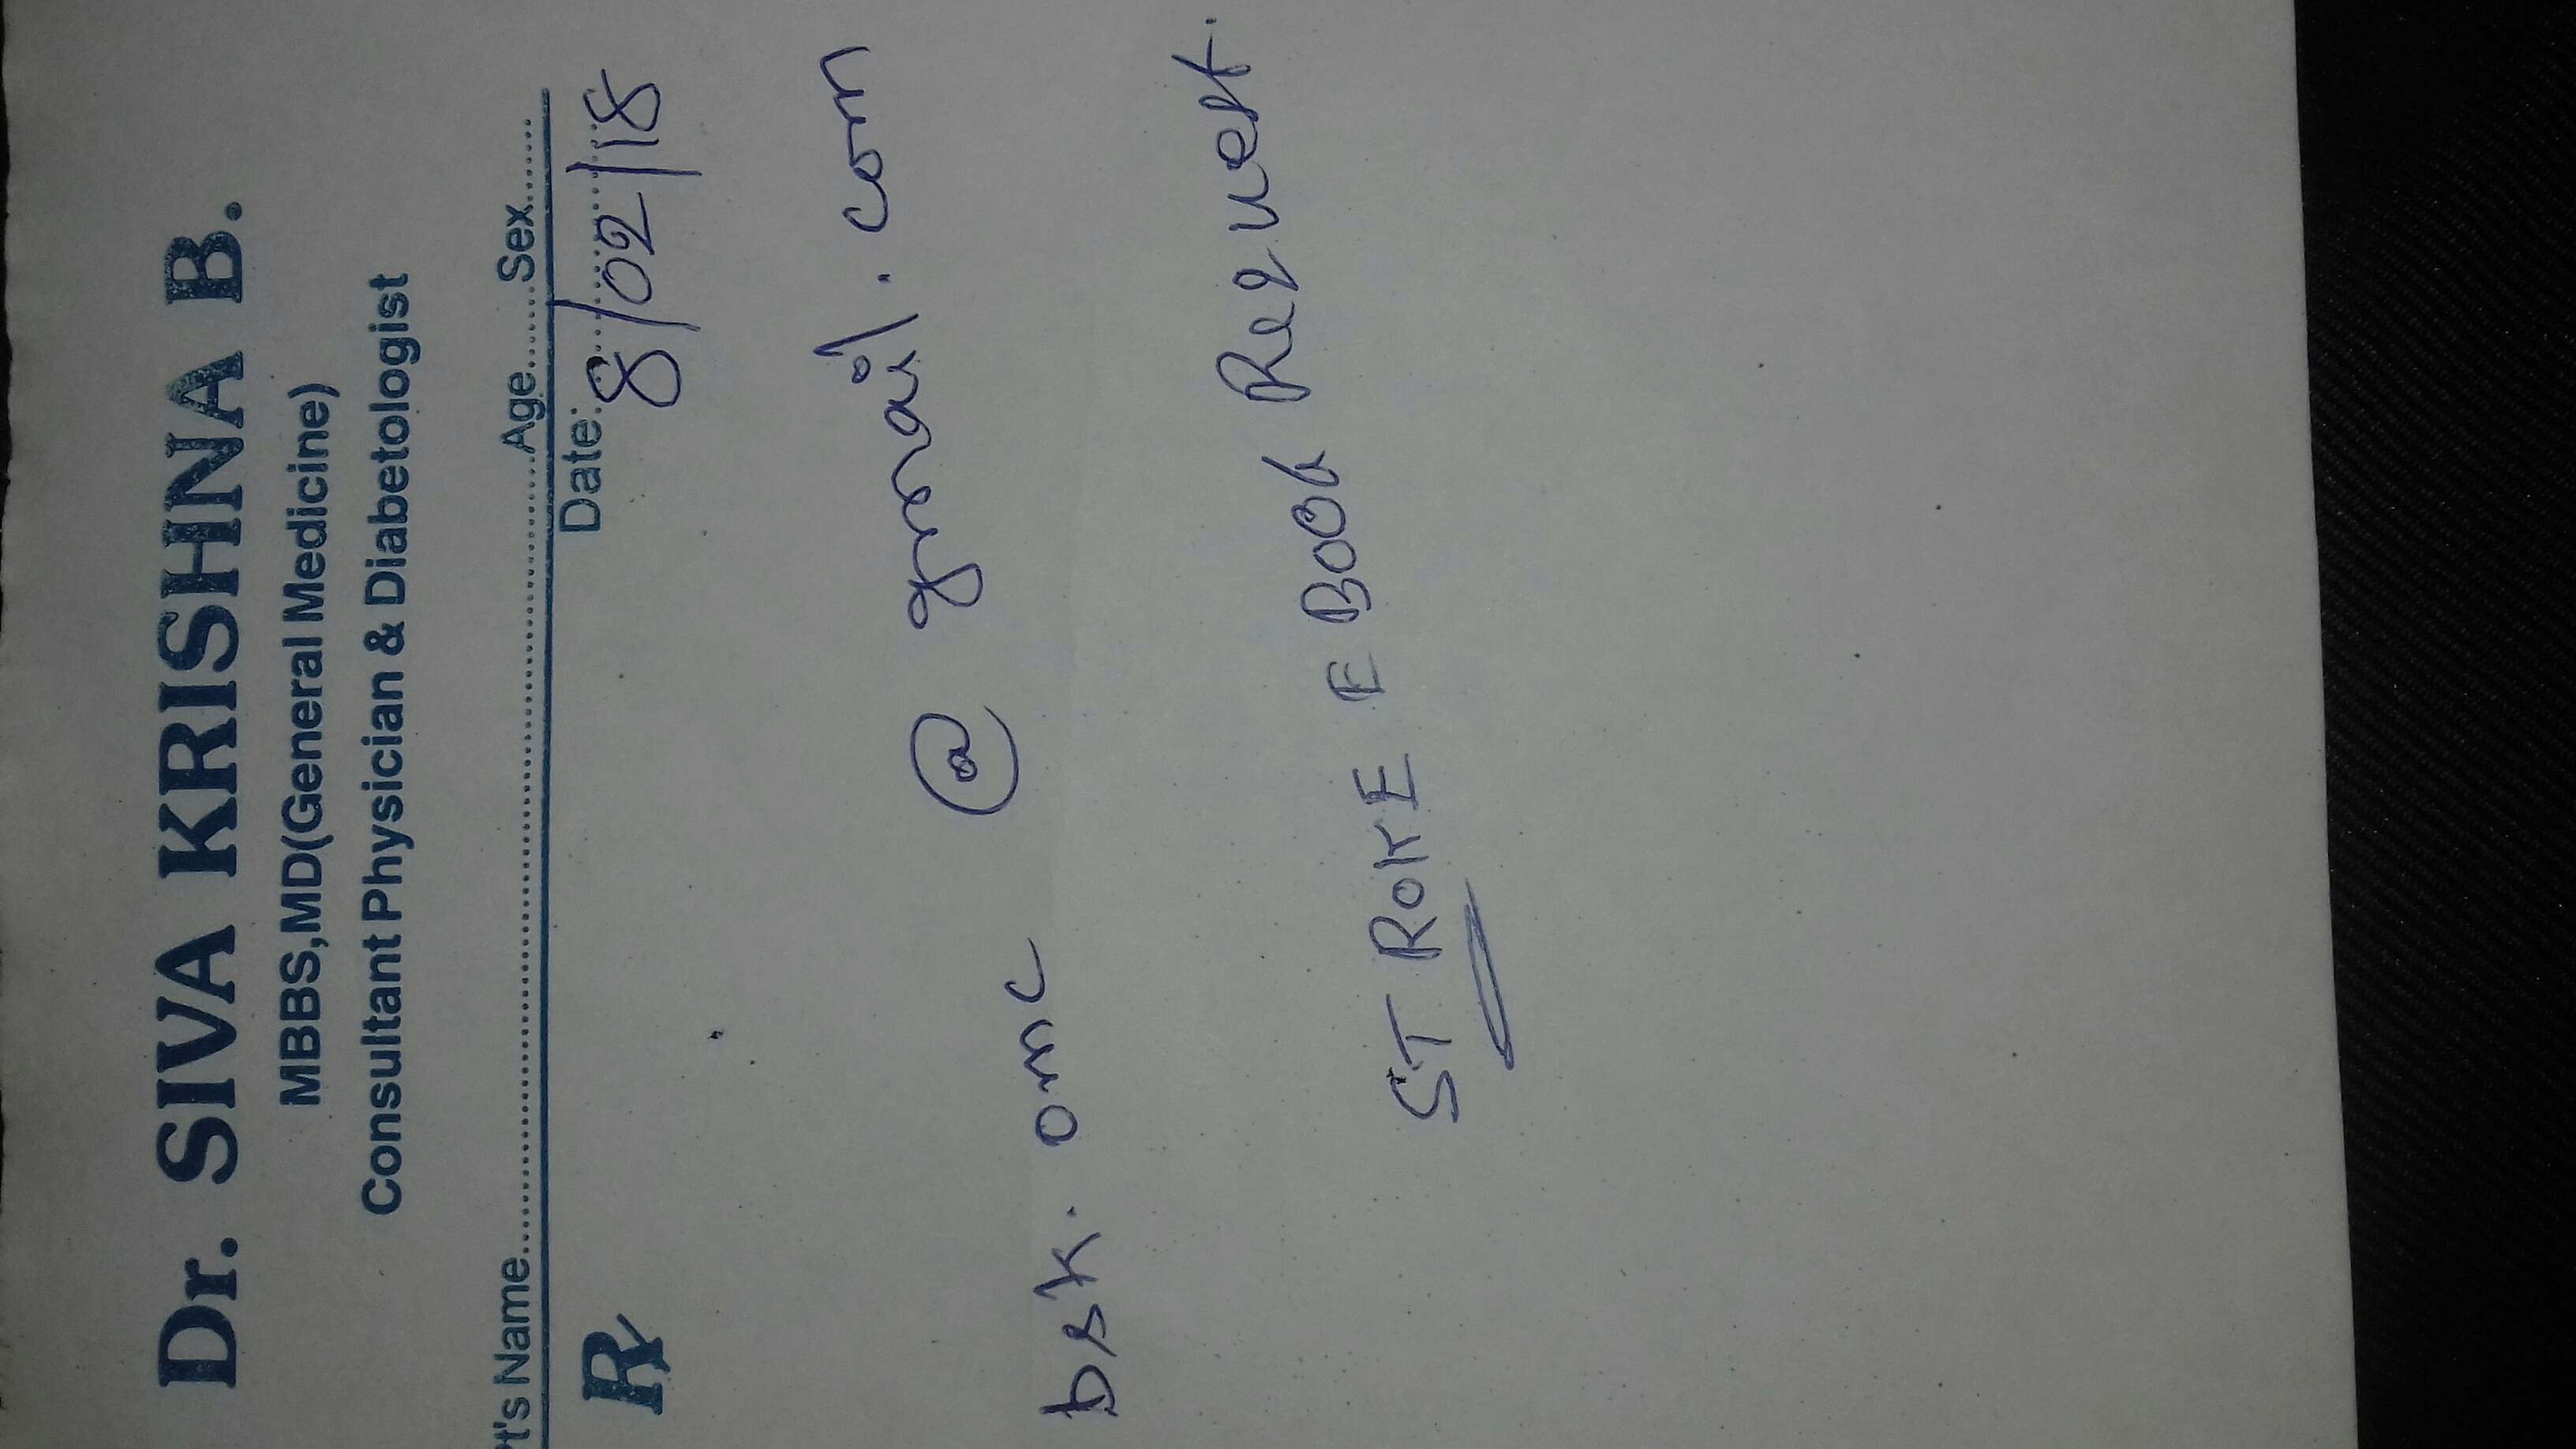 Dr. SIVA KRISHNA B.
MBBS,MD(General Medicine)
Consultant Physician & Diabetologist
Pt's Name.................................Age.......Sex.......
Date: 8/02/18
Rx
bsk.omc @ gmail.com
STROKE E BOOK Request.